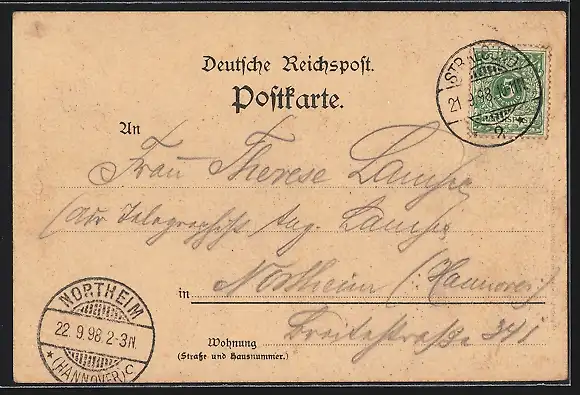 Deutsche Reichspost.
Postkarte.
STRALSUND
21.9.98
2.
An
Frau Therese Lampe
Telegraphist Aug. Lampe
in Northeim (Hannover)
Breitestraße 341
Wohnung
(Straße und Hausnummer.)
NORTHEIM
22.9.98.2-3N.
* (HANNOVER) C